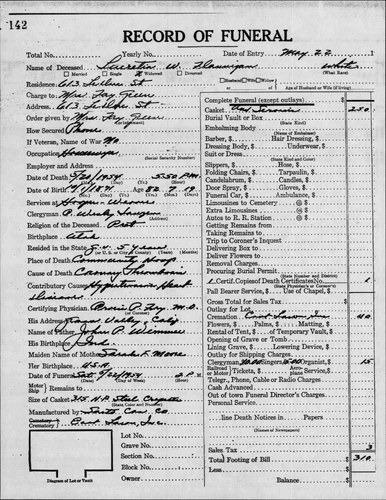 142
RECORD OF FUNERAL
Total No. Yearly No. Date of Entry May 22
Name of Deceased Lucretia W. Flannigan White
Married Single Widowed Divorced (What Race)
Residence 613 St Husband Wife Widow
or Age of Husband or Wife (if living)
Charge to Mrs. Fay Green
Address 613 St
Order given by Mrs Fay Green
How Secured Phone
If Veteran, Name of War No
Occupation Housewife
(Social Security Number)
Employer and Address
Date of Death 5/20/1954 5:50 P.M.
Date of Birth 1871 Age 82
Services at
Clergyman
Religion of the Deceased Prot
Birthplace Utah
Resided in the State
Place of Death Community Hosp
Cause of Death Coronary Thrombosis
Contributory Cause Hypertensive Heart
Disease
Certifying Physician M.D.
His Address Calif
Name of Father John P. Wimmer
His Birthplace Ind
Maiden Name of Mother Sarah E. Moore
Her Birthplace U.S.A.
Date of Funeral Sat 5/22/1954 2 P.M.
(Date) (Day of Week)
Motor Ship Remains to
Size of Casket
(State, Color and Number)
Manufactured by Casket Co
Cemetery
Crematory
Lot No.
Grave No.
Section No.
Block No.
Owner
Diagram of Lot or Vault
Complete Funeral (except outlays) $
Casket and Services 250
Burial Vault or Box
(State Kind)
Embalming Body
Barber, $ Hair Dressing, $
Dressing Body, $ Underwear, $
Suit or Dress
(State Kind and Color)
Slippers, $ Hose, $
Folding Chairs, $ Tarpaulin, $
Candelabrum, $ Candles, $
Door Spray, $ Gloves, $
Funeral Car, $ Ambulance, $
Limousines to Cemetery @ $
Extra Limousines @ $
Autos to R. R. Station @ $
Getting Remains from
Taking Remains to
Trip to Coroner's Inquest
Delivering Box to
Deliver Flowers to
Removal Charges
Procuring Burial Permit
(State Number and City)
1 Certif. Copies of Death Certificates 1
(State Physician's or Coroner's)
Pall Bearer Service, $ Use of Chapel, $
Gross Total for Sales Tax $
Outlay for Lot
Cremation 40
Flowers, $ Palms, $ Matting, $
Rental of Tent, $ of Temporary Vault, $
Opening of Grave or Tomb
Lining Grave, $ Lowering Device, $
Outlay for Shipping Charges
Clergyman 10.00 Singers 5.00 Organist, $ 15
Railroad Motor Tickets, $ Aeroplane Service, $
Telegr., Phone, Cable or Radio Charges
Cash Advanced
Out of town Funeral Director's Charges
Personal Service
line Death Notices in Papers
(Names of Newspapers)
Sales Tax 3
Total Footing of Bill $ 310
Less
Balance $